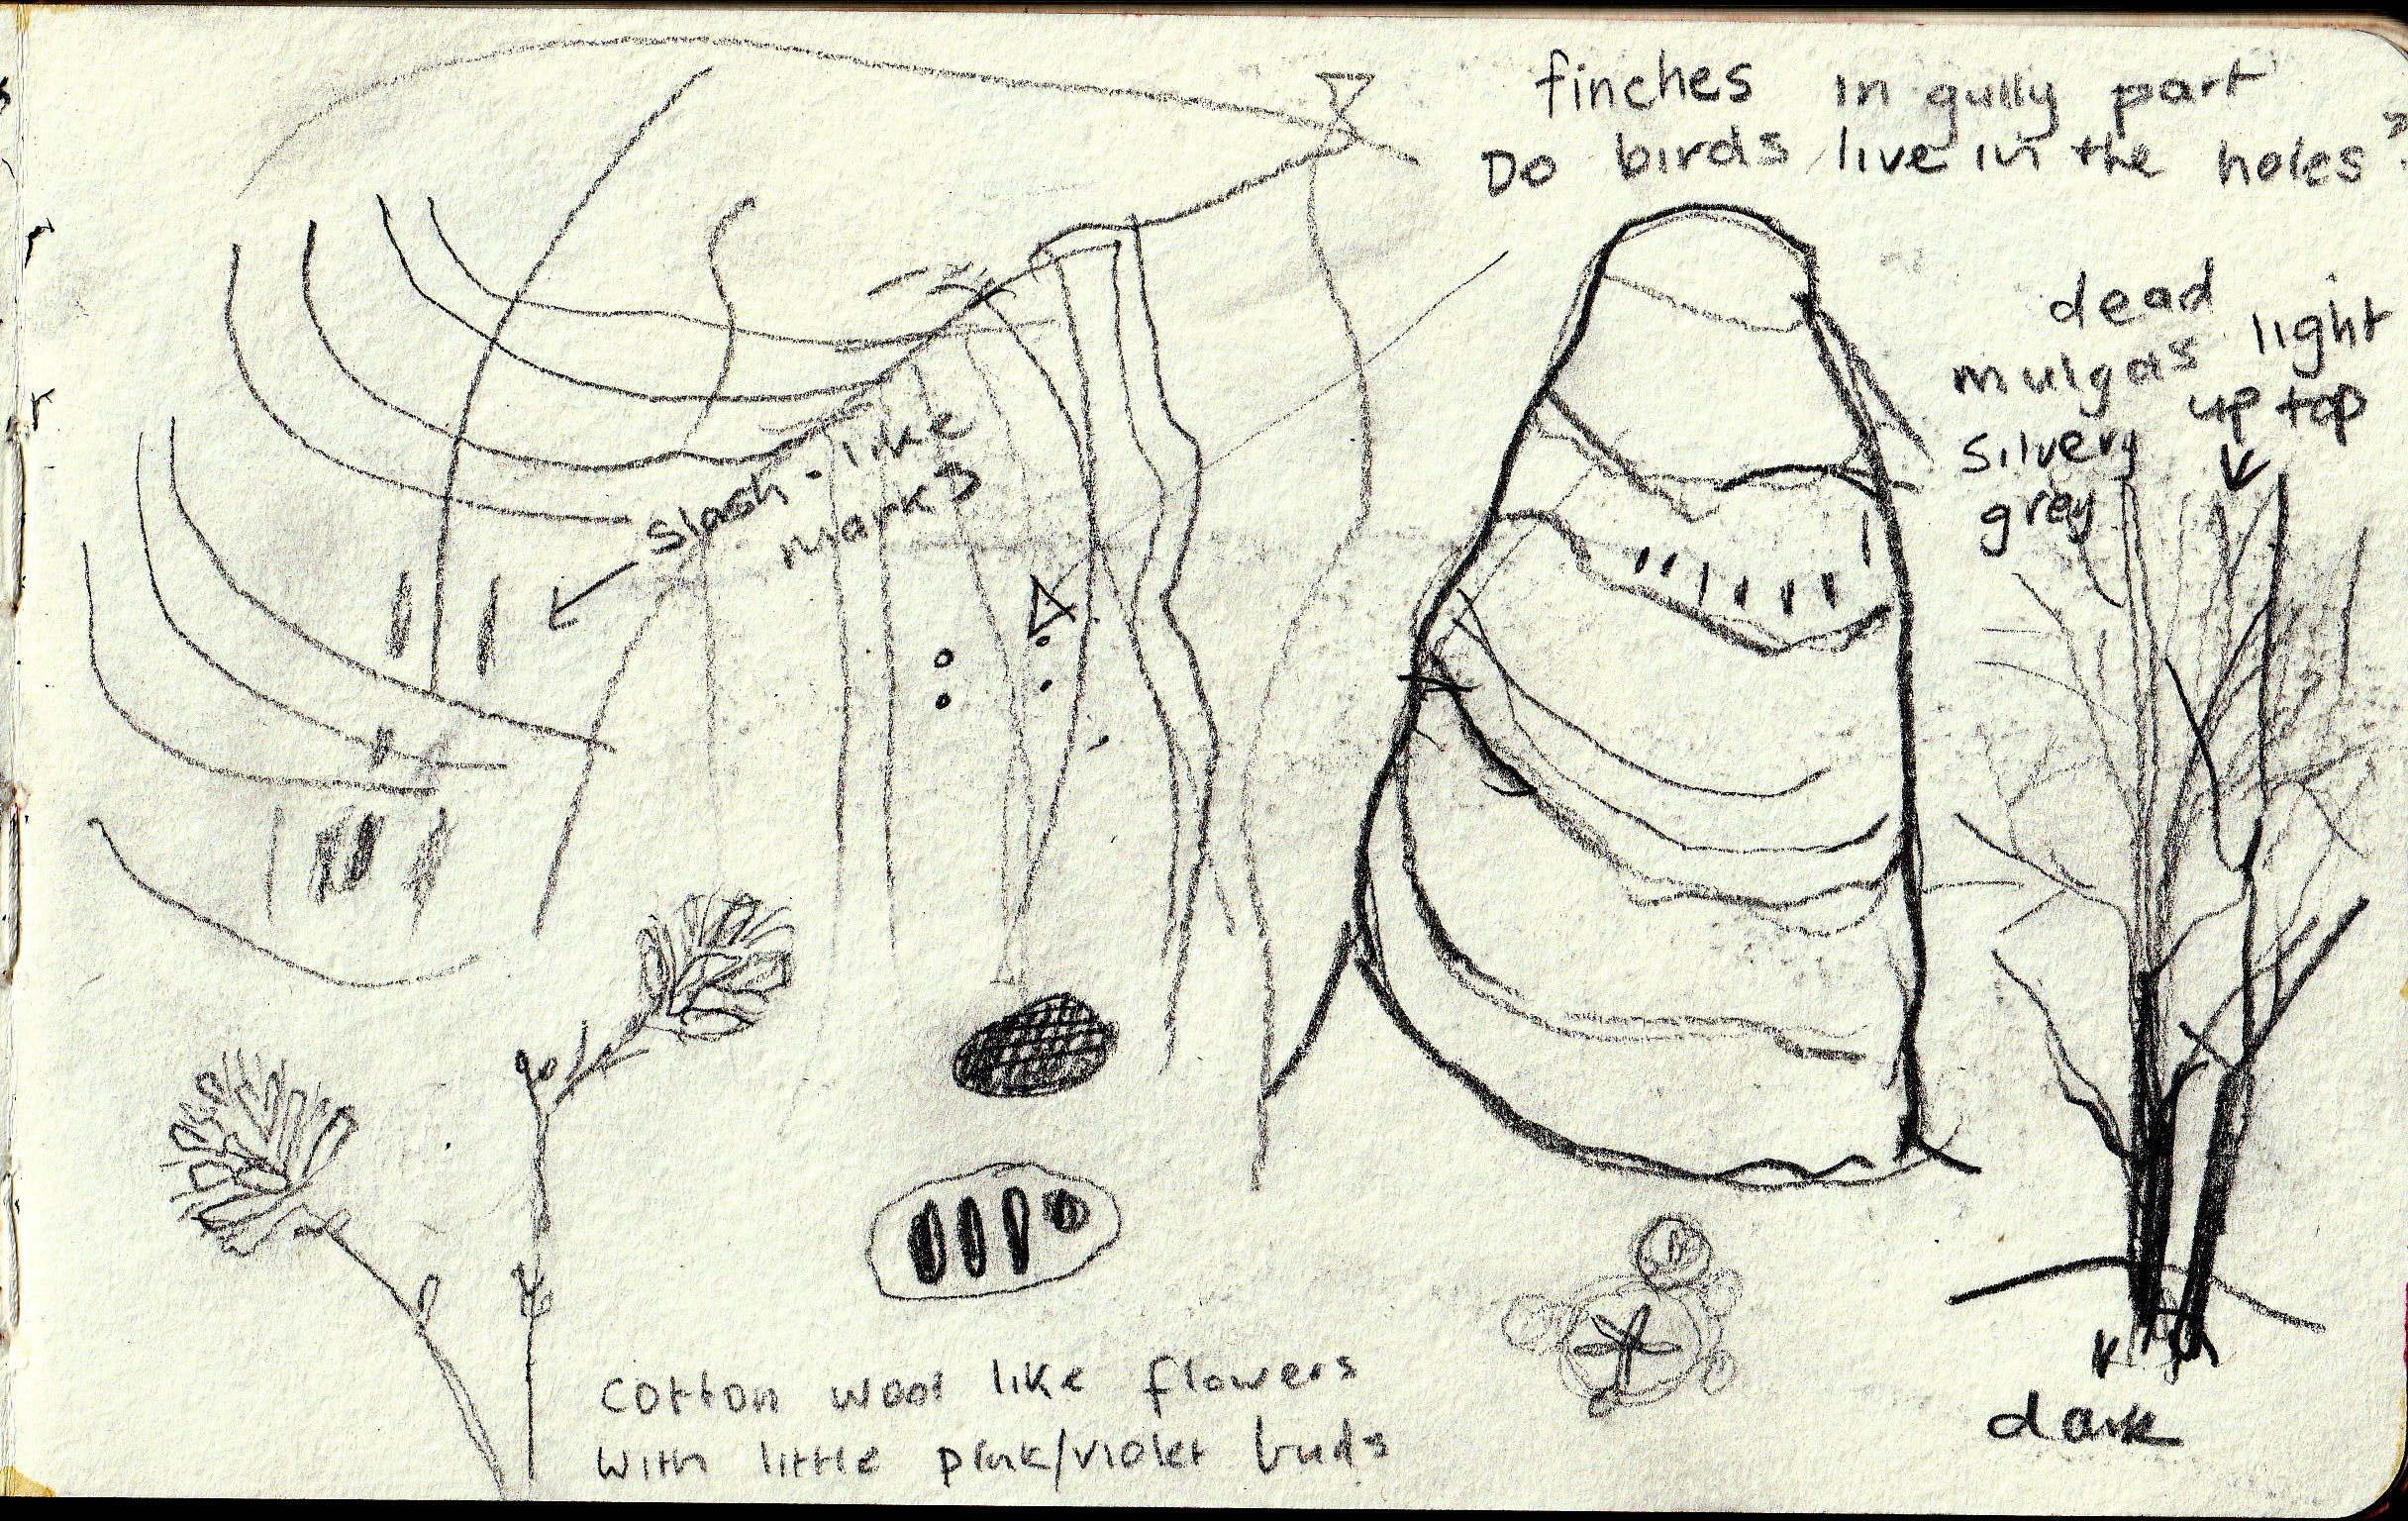 finches in gully part
Do birds live in the holes?
dead
mulgas
silvery
grey
light
up top
slash-like
marks
dark
Cotton wool like flowers
with little pink/violet buds